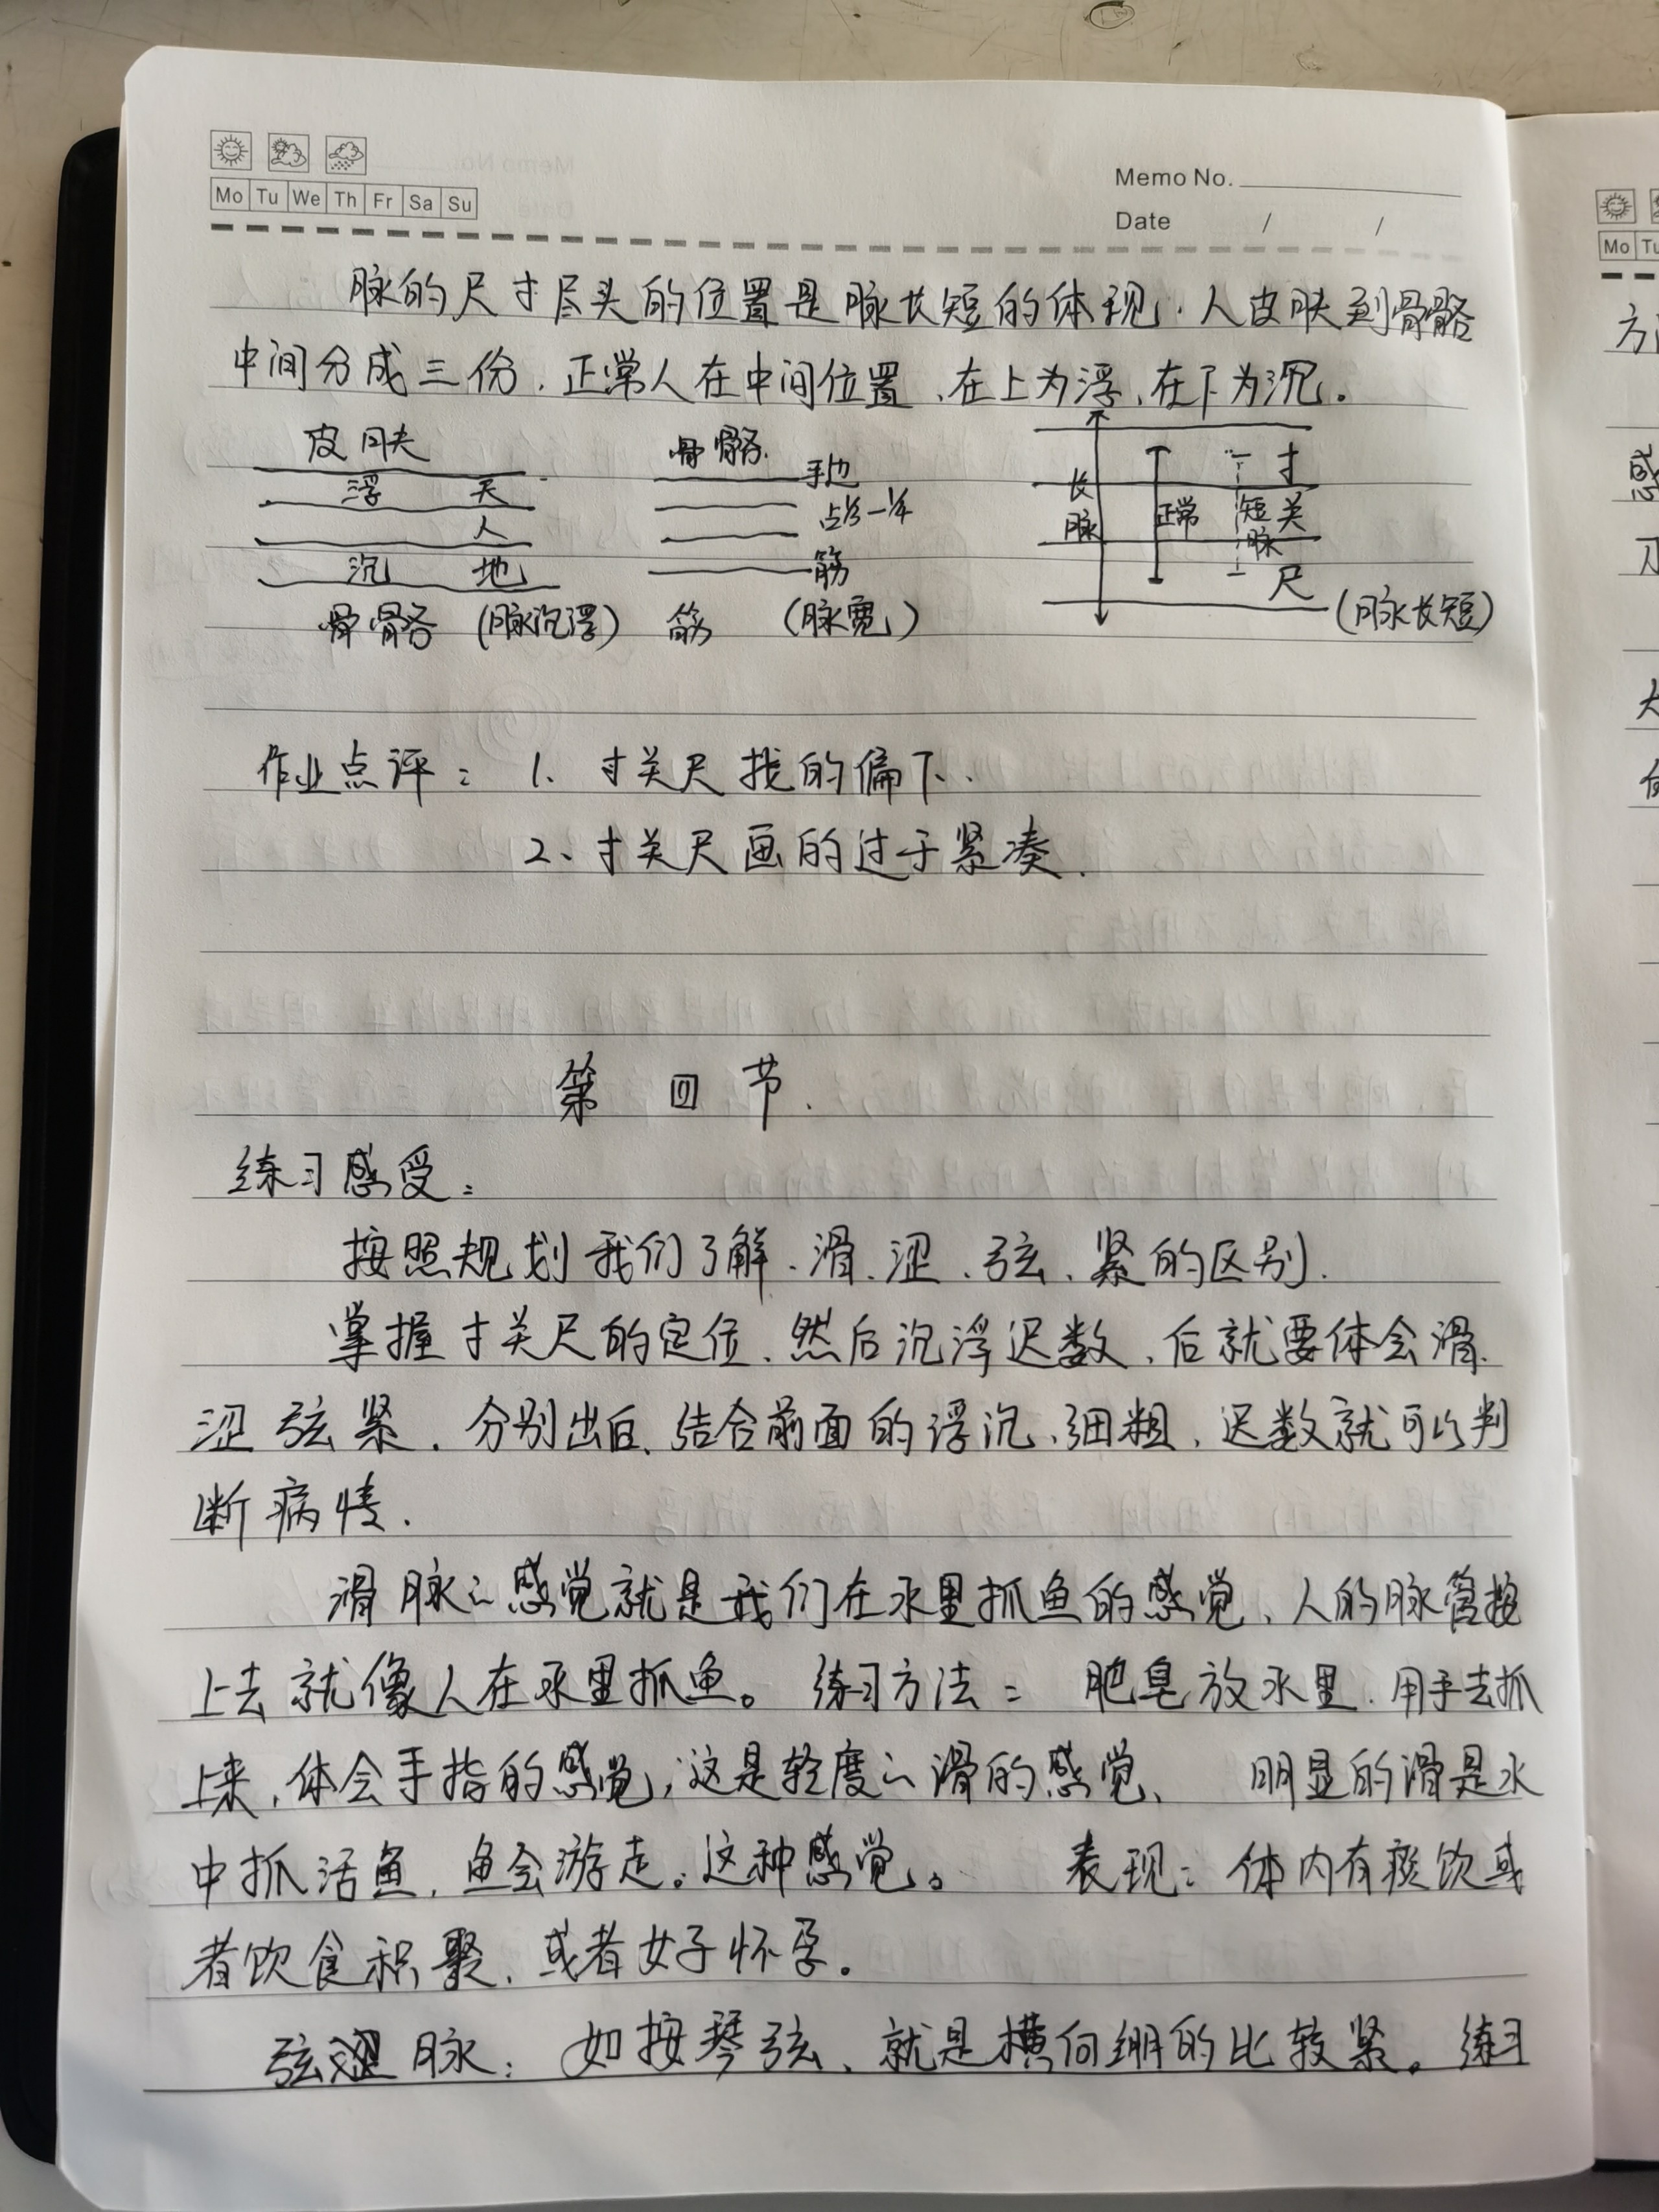 Mo Tu We Th Fr Sa Su
Memo No.
Date / /
脉的尺寸尽头的位置是脉长短的体现.人皮肤到骨骼
中间分成三份.正常人在中间位置、在上为浮、在下为沉.
皮肤
浮 天
人
沉 地
骨骼 (脉沉浮)
骨骼.
手边
占⅓一¼
筋
筋 (脉宽)
寸
长脉 正常 短脉 关
尺
(脉长短)
作业点评: 1、寸关尺找的偏下.
2、寸关尺画的过于紧凑.
第 四 节.
练习感受:
按照规划我们了解、滑、涩、弦、紧的区别.
掌握寸关尺的定位、然后沉浮迟数、后就要体会滑、
涩弦紧.分别出后、结合前面的浮沉、细粗、迟数就可以判
断病情.
滑脉之感觉就是我们在水里抓鱼的感觉、人的脉管按
上去就像人在水里抓鱼。练习方法: 肥皂放水里.用手去抓
上来,体会手指的感觉,这是轻度之滑的感觉、 明显的滑是水
中抓活鱼,鱼会游走。这种感觉。 表现: 体内有痰饮或
者饮食积聚,或者女子怀孕。
弦脉: 如按琴弦、就是横向绷的比较紧。练习
Mo Tu
方
感
刀